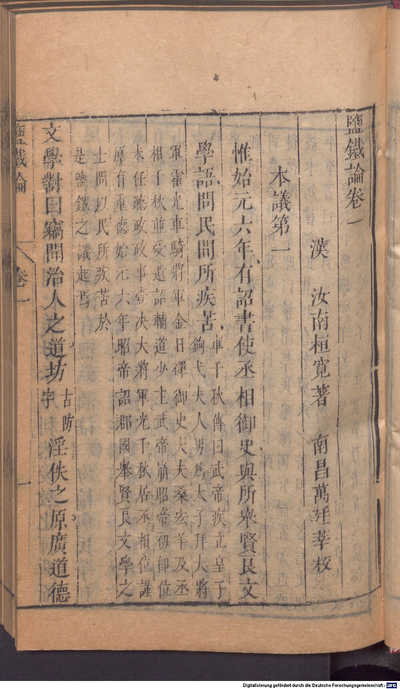 鹽鐵論卷一
漢 汝南桓寬著 南昌萬廷莘校
本議第一
惟始元六年有詔書使丞相御史與所舉賢良文
學語問民間所疾苦車千秋傳曰武帝疾立皇子
鉤弋夫人男為太子拜大將
軍霍光車騎將軍金日磾御史大夫桑宏羊及丞
相千秋並受遺詔輔道少主武帝崩昭帝初即位
未任聽政政事壹決大將軍光千秋居丞相位謹
厚有重德始元六年昭帝詔郡國舉賢良文學之
士問以民所疾苦於
是鹽鐵之議起焉
文學對曰竊聞治人之道坊古防字淫佚之原廣道德
鹽鐵論 卷一 一
Digitalisierung gefördert durch die Deutsche Forschungsgemeinschaft - DFG